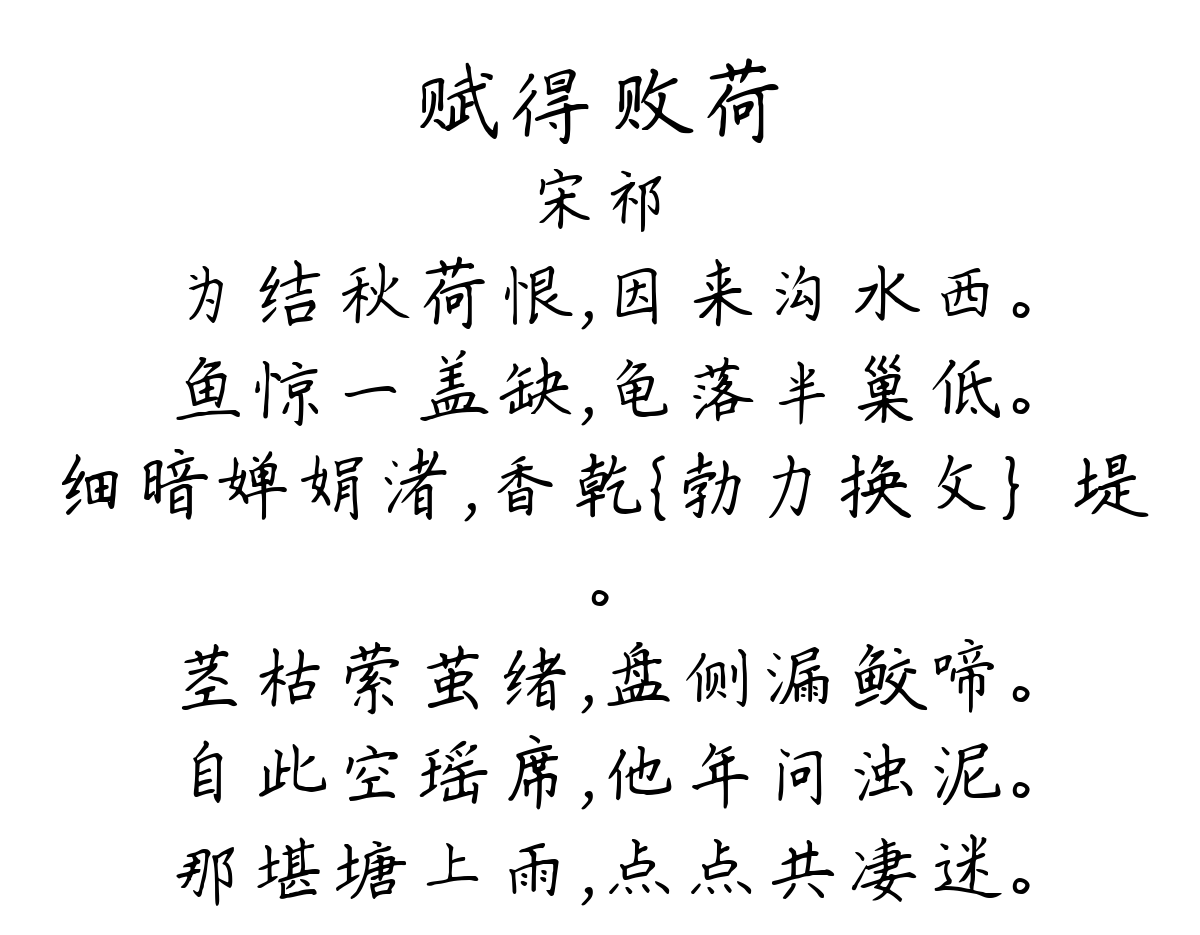 赋得败荷
宋祁
为结秋荷恨,因来沟水西。
鱼惊一盖缺,龟落半巢低。
细暗婵娟渚,香乾{勃力换攵}堤
。
茎枯萦茧绪,盘侧漏鲛啼。
自此空瑶席,他年问浊泥。
那堪塘上雨,点点共凄迷。